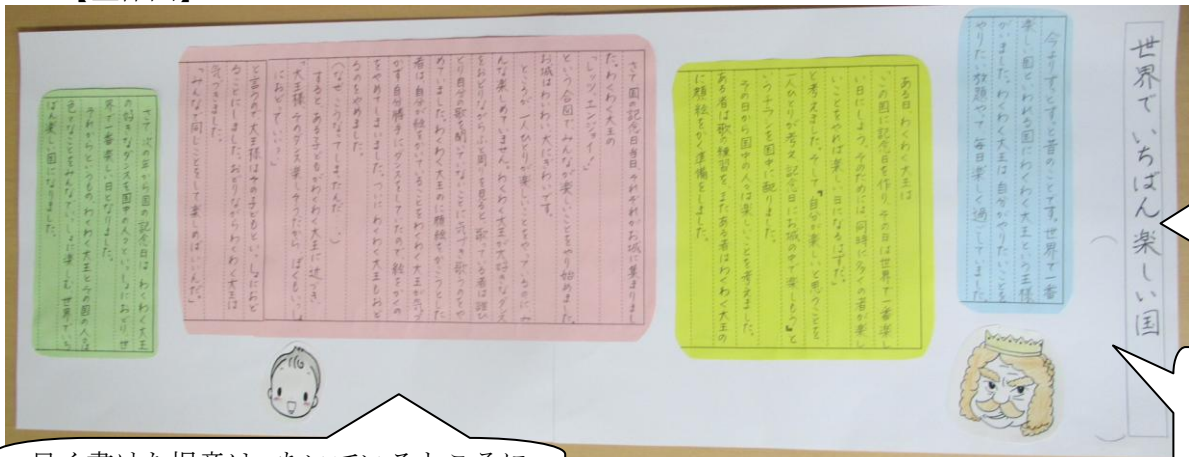 世界でいちばん楽しい国
今よりずっとずっと昔のことです。世界で一番
楽しい国といわれる国にわくわく大王という王様
がいました。わくわく大王は自分がやりたいことを
やりたい放題やって毎日楽しく過ごしていました。
ある日わくわく大王は
この国に記念日を作り、その日は世界で一番楽し
い日にしよう。そのためには同時に多くの者が楽し
いことをやれば楽しい日になるはずだ。
と考えました。そして「自分が楽しいと思うことを
一人ひとりが考え記念日にお城の中で楽しもう」と
いうチラシを国中に配りました。
その日から国中の人々は楽しいことを考えました。
ある者は歌の練習を、またある者はわくわく大王の
に顔絵をかく準備をしました。
さて国の記念日当日、それぞれがお城に集まりまし
た。わくわく大王の
「レッツ、エンジョイ!」
という合図でみんなが楽しいことをやり始めました。
お城はわいわい大にぎわいです。
ところが一人ひとりが楽しいことをやっているのにみ
んな楽しめていません。わくわく大王が大好きなダンス
をおどりながらふと周りを見ると、歌っている者は誰ひ
とり自分の歌を聞いてないことに気づき歌うのをや
めていました。わくわく大王のに顔絵をかこうとした
者は、自分が絵をかいていることをわくわく大王が気づ
かず自分勝手にダンスをしていたので、絵をかくの
をやめてしまいました。ついにわくわく大王もおど
るのをやめました。
(なぜこうなってしまったんだ…)
すると、ある子どもがわくわく大王に近づき、
「大王様、そのダンス楽しそうだから、ぼくもいっしょ
におどっていい?」
と言うので大王様はその子どもといっしょにおど
ることにしました。おどりながらわくわく大王は
気づきました。
「みんなで同じことをして楽しめばいいんだ。」
さて次の年から国の記念日は、わくわく大王
の好きなダンスを国中の人々といっしょにおどり、世
界で一番楽しい日となりました。
それからというもの、わくわく大王とその国の人々は
色々なことを、みんなでいっしょに楽しむ、世界でいち
ばん楽しい国になりました。